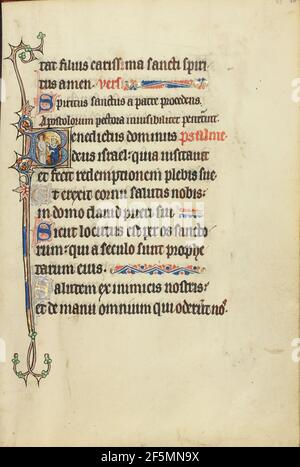 tat filius carissima sancti spiri
tus amen. vers
Spiritus sanctus a patre procedens.
Apostolorum pectora invisibiliter penetravit.
Benedictus dominus psalme.
deus israel: quia visitavit
et fecit redemptionem plebis sue
Et erexit cornu salutis nobis:
in domo david pueri sui
Sicut locutus est per os sancto
rum: qui a seculo sunt prophe
tarum eius.
Salutem ex inimicis nostris:
et de manu omnium qui oderunt nos.
alamy
Image ID: 2F5MN9X
www.alamy.com